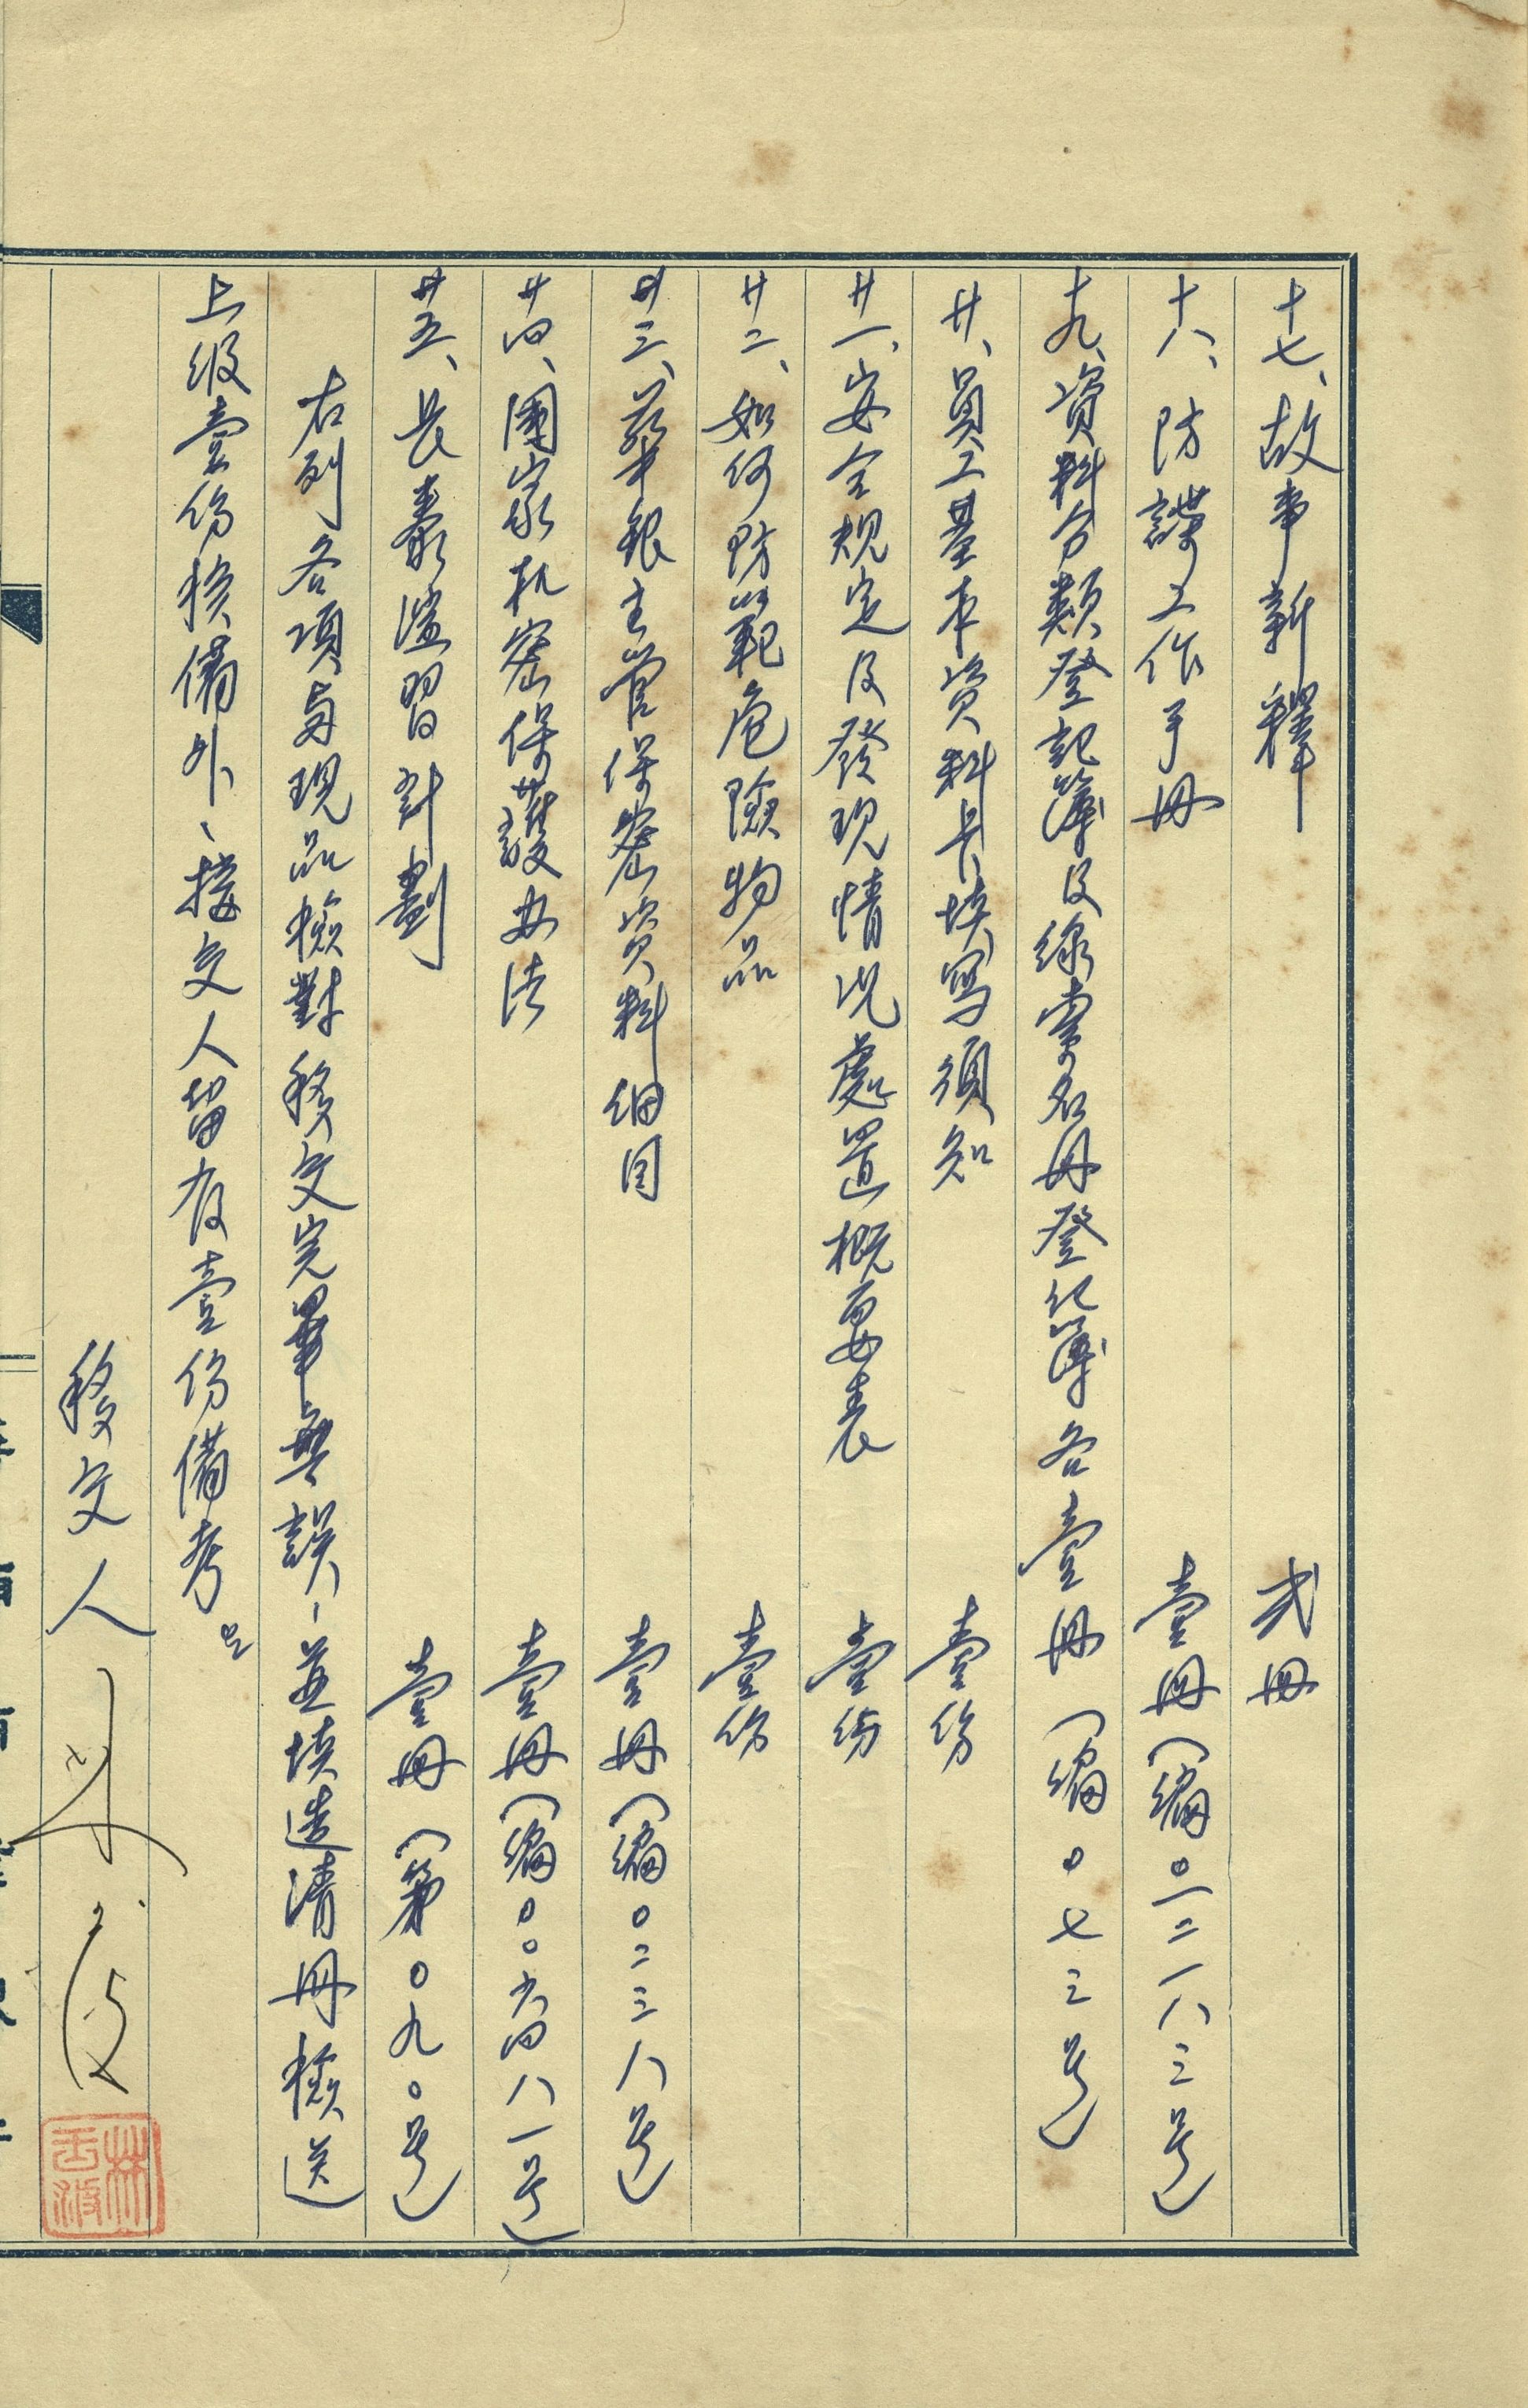 十七、故事新釋 弍冊
十八、防諜工作手冊 壹冊（編〇二二一八三号）
十九、資料分類登記簿及線索名冊登记簿各壹冊（編〇七三号）
廿、員工基本資料卡填寫須知 壹份
廿一、安全規定及發現情況處置概要表 壹份
廿二、如何防範危險物品 壹份
廿三、 主管保密資料細目 壹冊（編〇二三八号）
廿四、國家机密保護办法 壹冊（編〇〇六四八一号）
廿五、長泰演習計劃 壹冊（第〇九〇号）
右列各項与現品檢對移交完畢無誤、並填造清冊檢送
上級壹份核備外、接交人留存壹份備考
移交人
林玉波